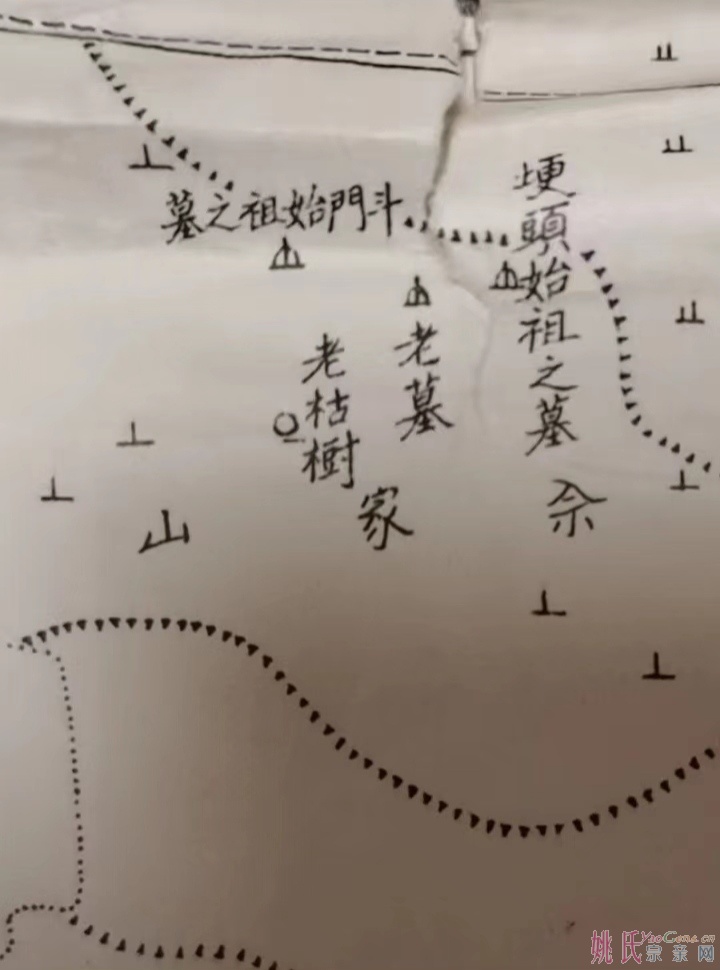 埂頭始祖之墓
斗門始祖之墓
老墓
老枯樹
佘家山
姚氏宗亲网
YaoGene.cn